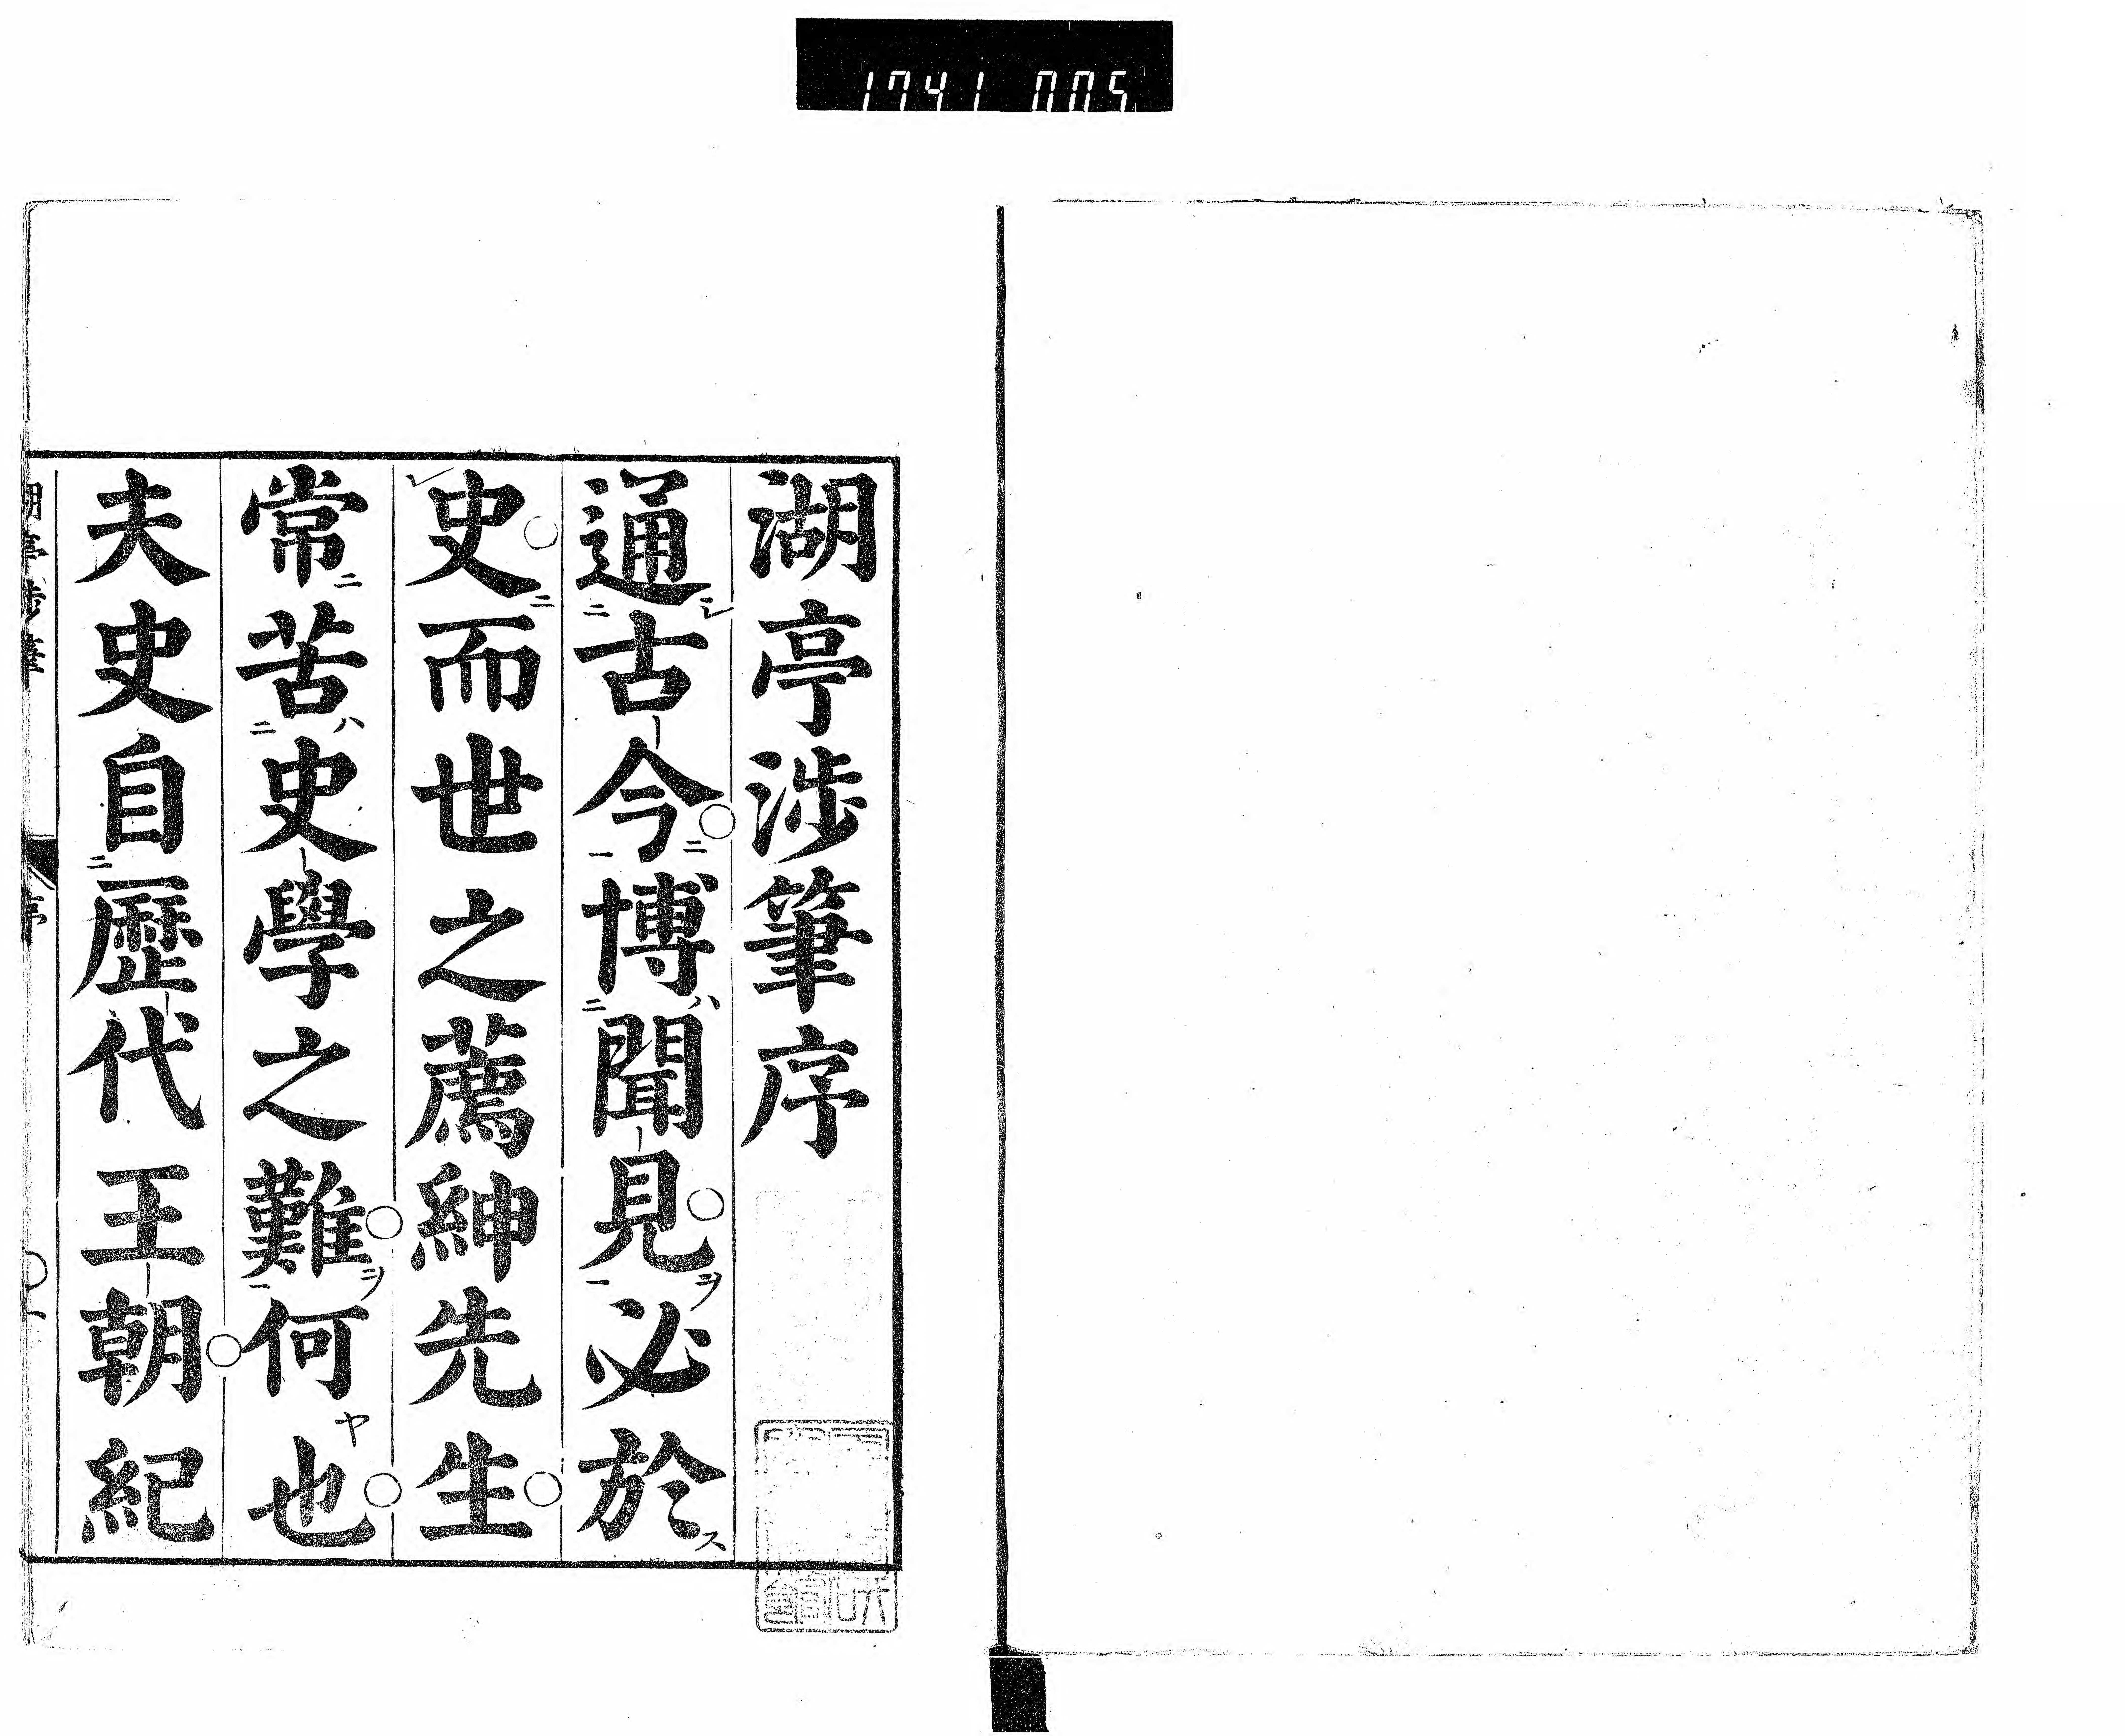 1741 005
湖亭涉筆序
通古今博聞見必於
史而世之薦紳先生
常苦史學之難何也
夫史自歷代王朝紀